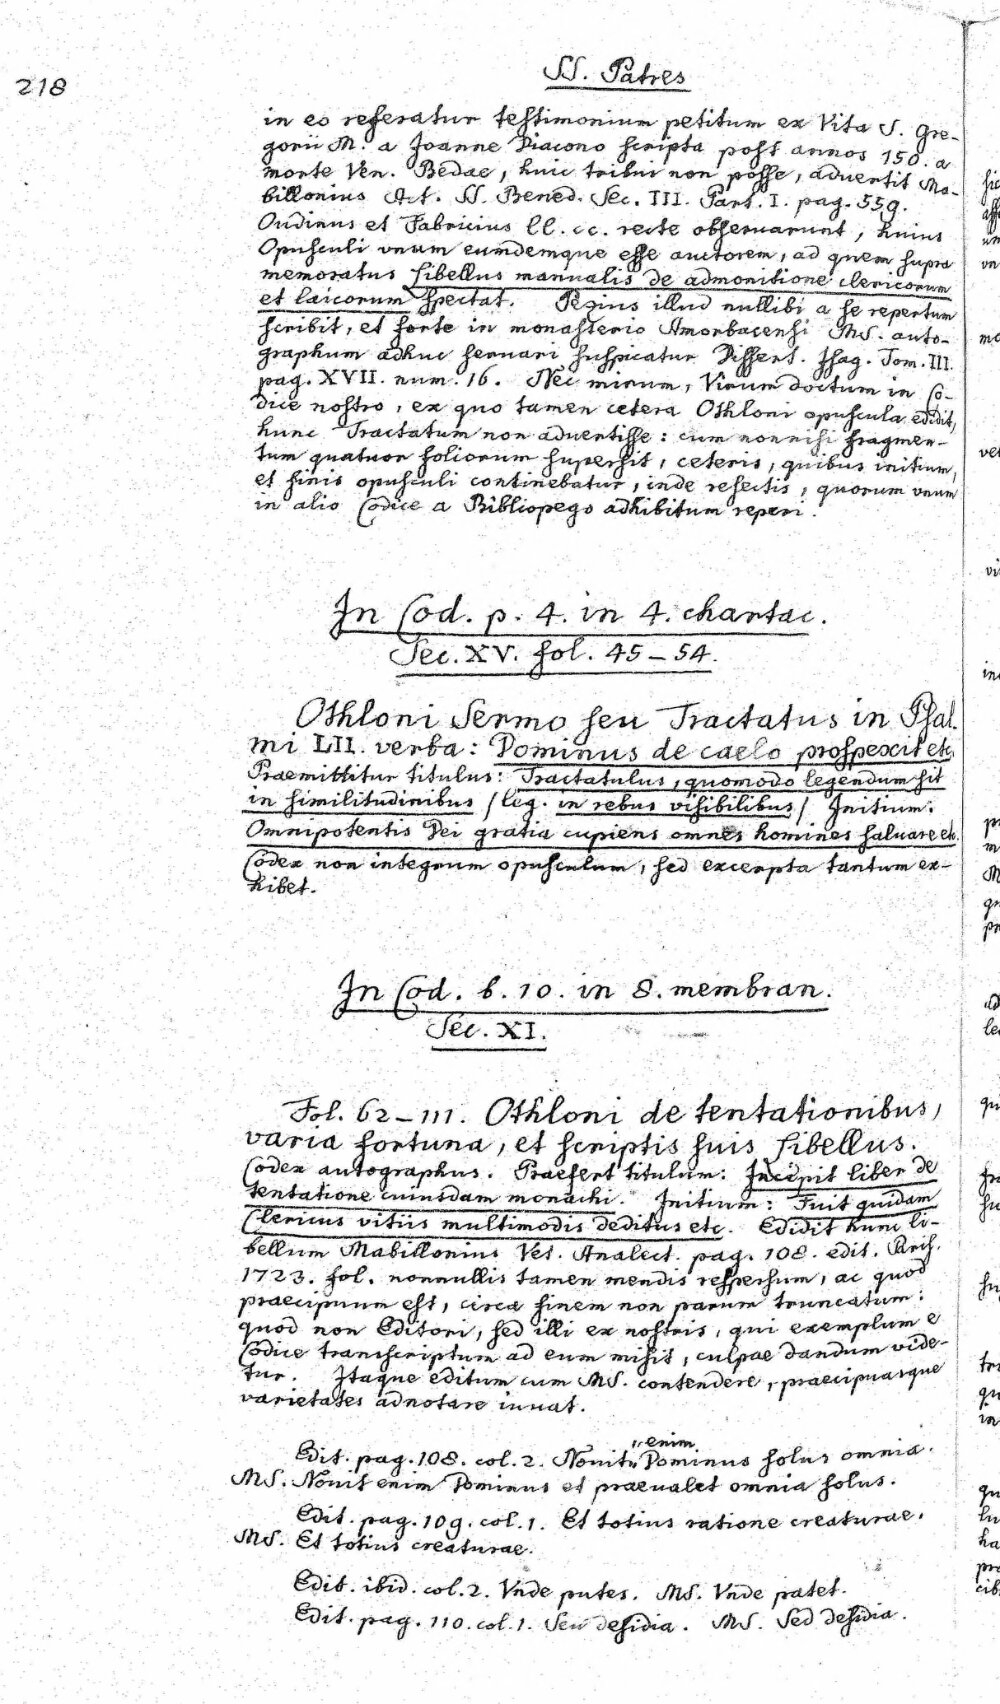 218
SS. Patres
in eo referatur testimonium petitum ex Vita S. Gre-
gorii M. a Joanne Diacono scripta post annos 150. a
morte Ven. Bedae, huic tribui non posse, advertit Ma-
billonius Act. SS. Bened. Sec. III. Part. I. pag. 559.
Oudinus et Fabricius ll. cc. recte observarunt, huius
Opusculi unum eumdemque esse auctorem, ad quem supra
memoratus libellus manualis de admonitione clericorum
et laicorum spectat. Pezius illud nullibi a se repertum
scribit, et forte in monasterio Amorbacensi MS. auto-
graphum adhuc servari suspicatur Dissert. Isag. Tom. III.
pag. XVII. num. 16. Nec mirum, Virum doctum in Co-
dice nostro, ex quo tamen cetera Othloni opuscula edidit,
hunc Tractatum non advertisse: cum nonnisi fragmen-
tum quatuor foliorum supersit, ceteris, quibus initium,
et finis opusculi continebatur, inde resectis, quorum unum
in alio Codice a Bibliopego adhibitum reperi.
In Cod. p. 4. in 4. chartac.
Sec. XV. fol. 45-54.
Othloni Sermo seu Tractatus in Psal.
mi LII. verba: Dominus de caelo prospexit etc.
Praemittitur titulus: Tractatulus, quomodo legendum sit
in similitudinibus (leg. in rebus visibilibus) Initium:
Omnipotentis Dei gratia cupiens omnes homines salvare etc.
Codex non integrum opusculum, sed excerpta tantum ex-
hibet.
In Cod. b. 10. in 8. membran.
Sec. XI.
Fol. 62-111. Othloni de tentationibus,
varia fortuna, et scriptis suis libellus.
Codex autographus. Praefert titulum: Incipit liber de
tentatione cuiusdam monachi. Initium: Fuit quidam
Clericus vitiis multimodis deditus etc. Edidit hunc li-
bellum Mabillonius Vet. Analect. pag. 108. edit. Paris.
1723. fol. nonnullis tamen mendis respersum, ac quod
praecipuum est, circa finem non parum truncatum:
quod non Editori, sed illi ex nostris, qui exemplum e
Codice transcriptum ad eum misit, culpae dandum vide-
tur. Itaque editum cum MS. contendere, praecipuasque
varietates adnotare iuvat.
enim
Edit. pag. 108. col. 2. Novit Dominus solus omnia.
MS. Novit enim Dominus et praevalet omnia solus.
Edit. pag. 109. col. 1. Et totius ratione creaturae.
MS. Et totius creaturae.
Edit. ibid. col. 2. Vnde putes. MS. Vnde patet.
Edit. pag. 110. col. 1. Seu desidia. MS. Sed desidia.